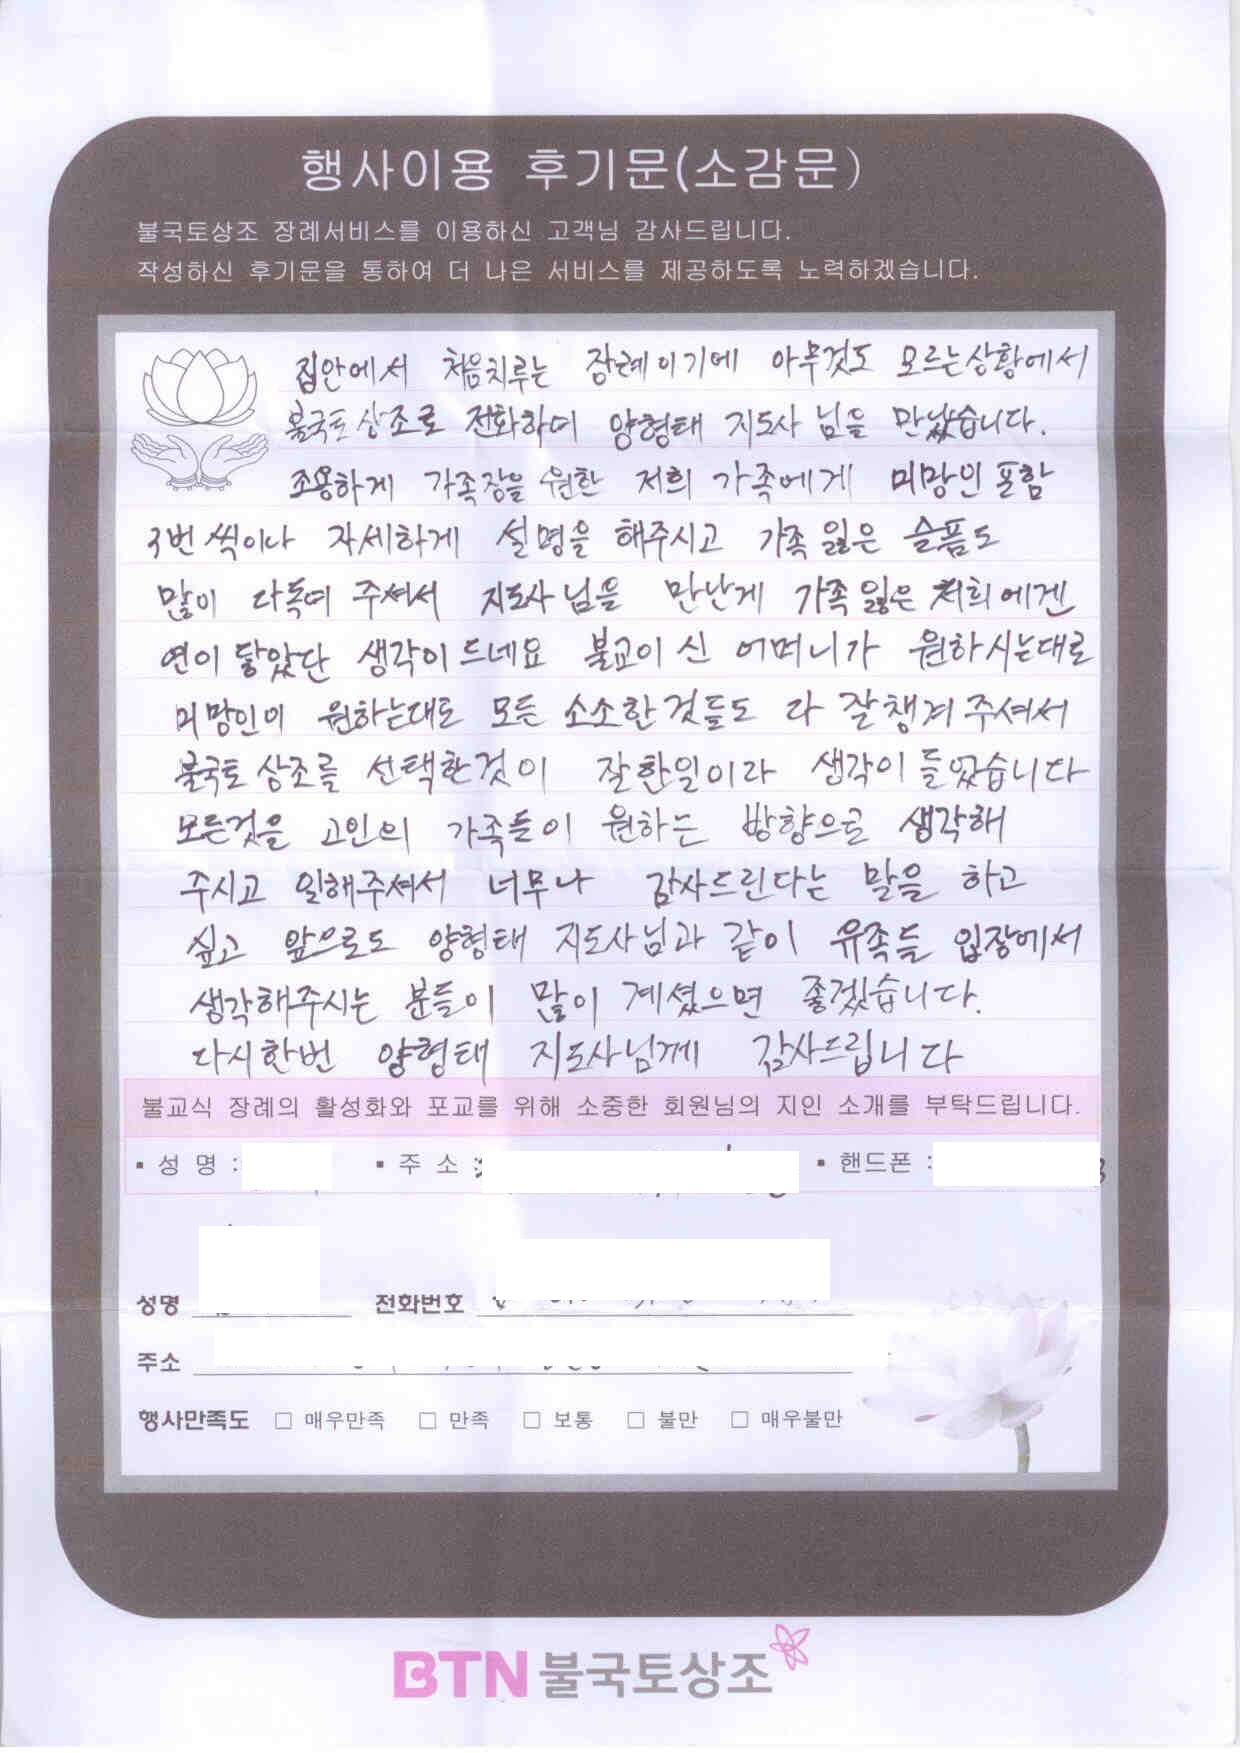 행사이용 후기문(소감문)
불국토상조 장례서비스를 이용하신 고객님 감사드립니다.
작성하신 후기문을 통하여 더 나은 서비스를 제공하도록 노력하겠습니다.
집안에서 처음치루는 장례이기에 아무것도 모르는상황에서
불국토상조로 전화하며 양형태 지도사님을 만났습니다.
조용하게 가족장을 원한 저희 가족에게 미망인포함
3번씩이나 자세하게 설명을 해주시고 가족잃은 슬픔도
많이 다독여 주셔서 지도사님을 만난게 가족잃은 저희에겐
연이 닿았단 생각이드네요 불교이신 어머니가 원하시는대로
미망인이 원하는대로 모든 소소한것들도 다 잘챙겨주셔서
불국토상조를 선택한것이 잘한일이라 생각이 들었습니다
모든것을 고인의 가족들이 원하는 방향으로 생각해
주시고 일해주셔서 너무나 감사드린다는 말을 하고
싶고 앞으로도 양형태 지도사님과 같이 유족들 입장에서
생각해주시는 분들이 많이 계셨으면 좋겠습니다.
다시한번 양형태 지도사님께 감사드립니다
불교식 장례의 활성화와 포교를 위해 소중한 회원님의 지인 소개를 부탁드립니다.
▪ 성 명 : ▪ 주 소 : ▪ 핸드폰 :
성명 전화번호
주소
행사만족도 □ 매우만족 □ 만족 □ 보통 □ 불만 □ 매우불만
BTN 불국토상조